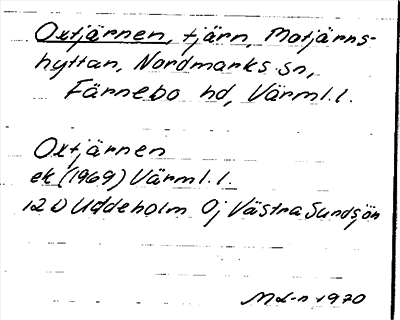 Oxtjärnen, tjärn, Motjärns-
hyttan, Nordmarks sn,
Färnebo hd, Värml. l.
Oxtjärnen
ek (1969) Värml. l.
12 D Uddeholm 0j Västra Sundsjön
ML-n 1970